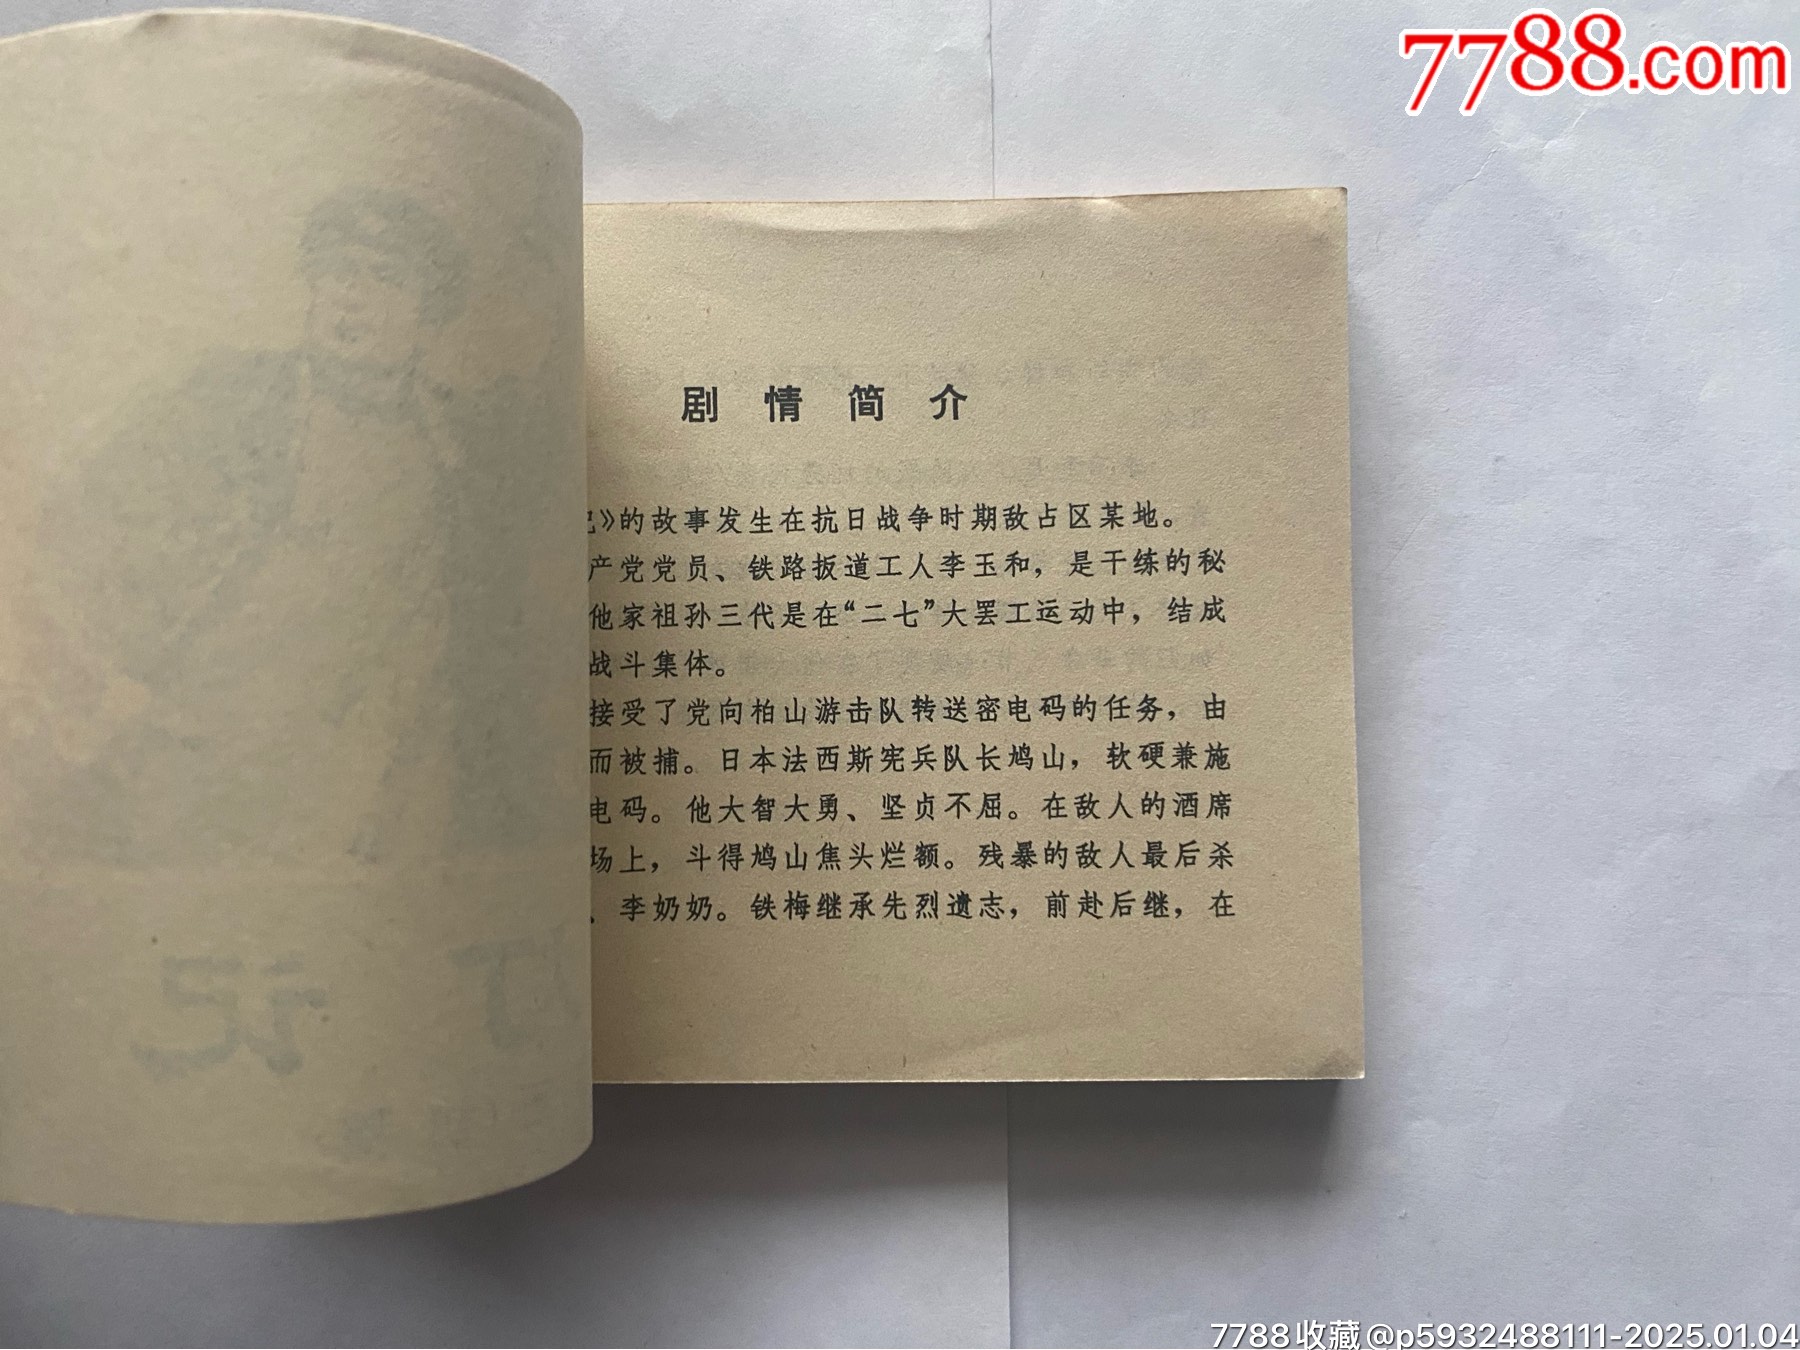 7788.com
剧情简介
》的故事发生在抗日战争时期敌占区某地。
产党党员、铁路扳道工人李玉和，是干练的秘
他家祖孙三代是在“二七”大罢工运动中，结成
战斗集体。
接受了党向柏山游击队转送密电码的任务，由
而被捕。日本法西斯宪兵队长鸠山，软硬兼施
电码。他大智大勇、坚贞不屈。在敌人的酒席
场上，斗得鸠山焦头烂额。残暴的敌人最后杀
、李奶奶。铁梅继承先烈遗志，前赴后继，在
记
7788收藏@p5932488111-2025.01.04